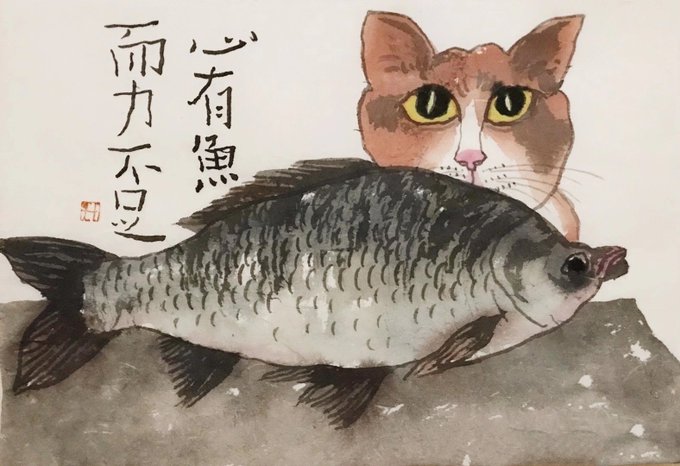 心有魚
而力不足